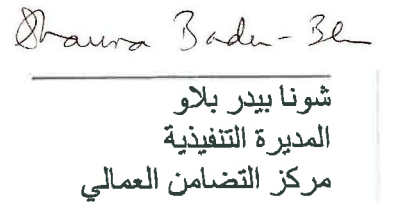 Shauna Bader-Bl
شونا بيدر بلاو
المديرة التنفيذية
مركز التضامن العمالي